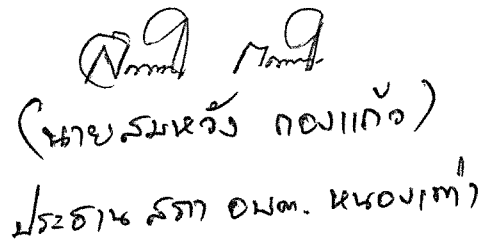 (นายสมหวัง กองแก้ว)
ประธาน สภา อบต. หนองเต่า